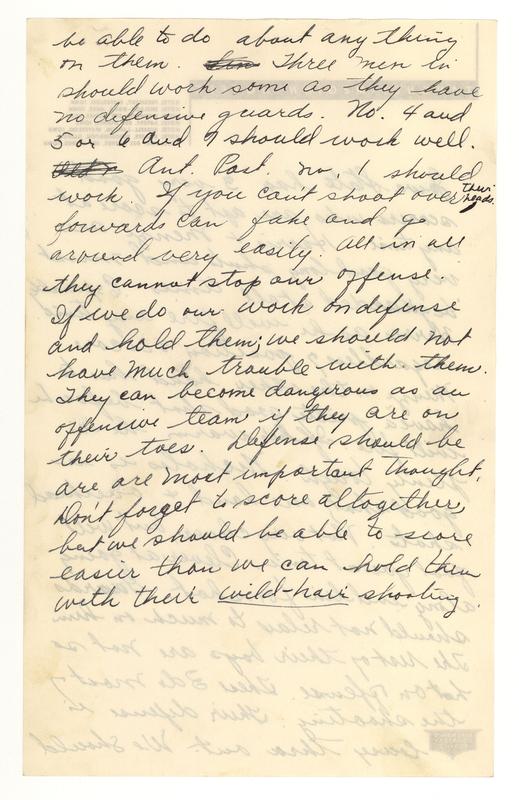 be able to do about any thing
on them. Three men in
should work some as they have
no defensive guards. No. 4 and
5 or 6 and 7 should work well.
Ant. Post. no. 1 should
work. If you can't shoot over their heads.
forwards can fake and go
around very easily. All in all
they cannot stop our offense.
If we do our work on defense
and hold them; we should not
have much trouble with them.
They can become dangerous as an
offensive team if they are on
their toes. Defense should be
are are most important thought.
Don't forget to score altogether,
but we should be able to score
easier than we can hold them
with their wild-hair shooting.